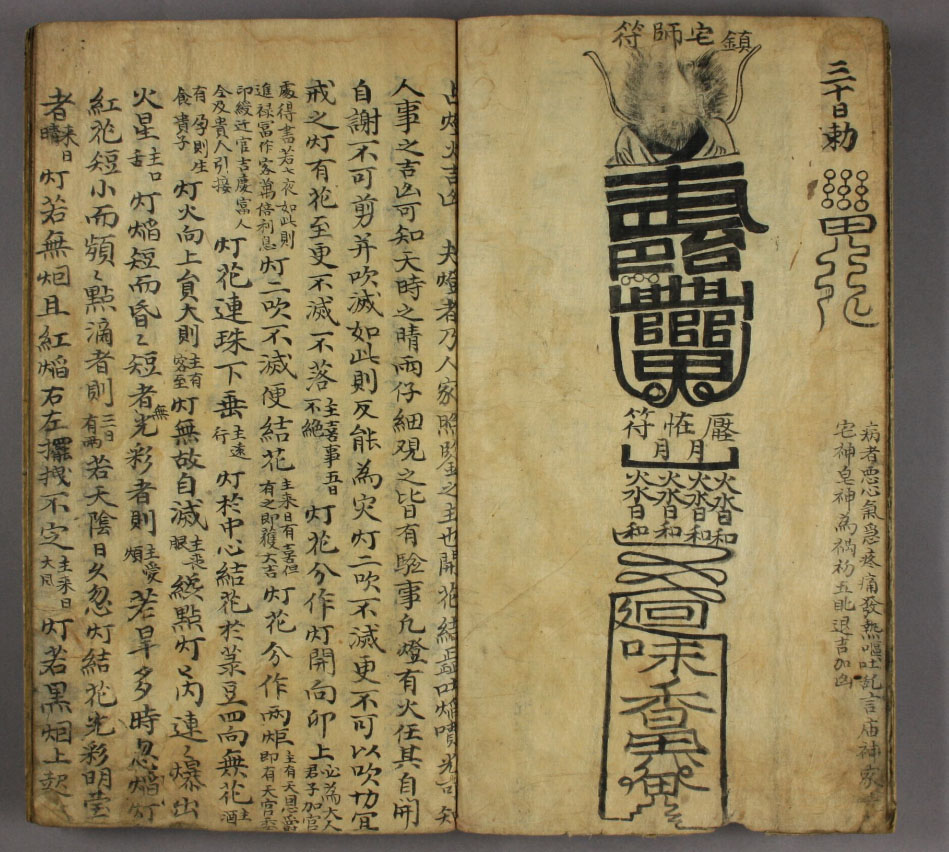 三十日勅
病者悪心氣急疼痛發熱嘔吐乱言庙神家
宅神皂神為禍礿五瓩退吉加凶
鎮宅師符
壓恠符
月月
火沓日和火沓日和火沓日和火沓日和
迴
味
香
占燈火吉凶 夫燈者乃人家照鑒之主也開花結蕋吐焰噴光可知
人事之吉凶可知天時之晴雨仔細观之皆有騐事凡燈有火任其自開
自謝不可剪并吹滅如此則反能為灾灯二吹不滅更不可以吹切宜
戒之灯有花至更不滅一不落主喜事五日不絕灯花分作灯開向卯上必為大人君子加官
處得書若七夜如此則進禄冨作客萬倍利息灯二吹不滅便結花主來日有喜但有之即獲大吉灯花分作兩炬主有天恩當即有天官
印綬迁官吉慶富人全及貴人引接灯花連珠下垂主遠行灯於中心結花於菉豆四向無花主酒
有孕則生食貴子灯火向上貟大則主有客至灯無故自滅主喪眼緩點灯以芮連〻爆出
火星主口舌灯焰短而昏〻短者光彩者則主憂煩若早多時忽焰灯
紅花短小而頻〻點滴者則三日有雨若天陰日久忽灯結花光彩明莹
者來日晴灯若無烟且紅焰右左擺拽不定主來日大風灯若黑烟上起